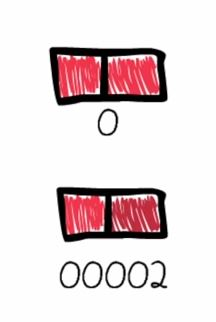 0
00002